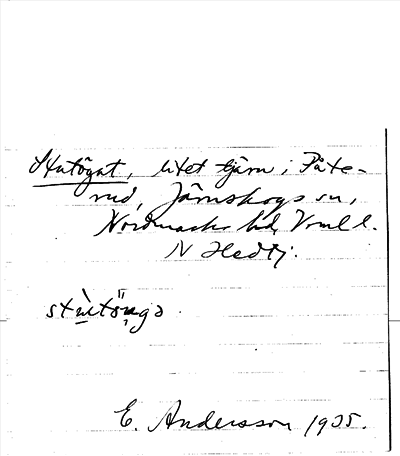 Stutögat, litet tjärn i Påte-
rud, Järnskogs sn,
Nordmarks hd, Vrml l.
N Hedtj.
E. Andersson 1935.